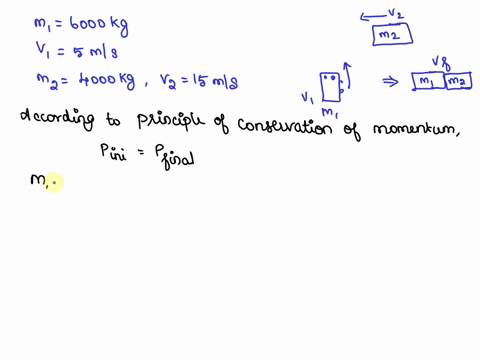 m₁ = 6000 kg
V₁ = 5 m/s
m₂ = 4000 kg , V₂ = 15 m/s
V₂
m₂
V₁
m₁
⇒
Vf
m₁ m₂
According to principle of conservation of momentum,
Pini = Pfinal
m₁